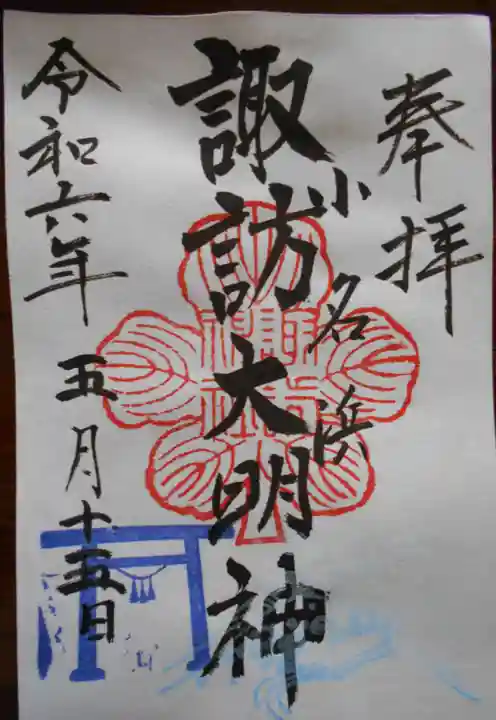 奉拝
小名浜
諏訪大明神
令和六年五月十五日